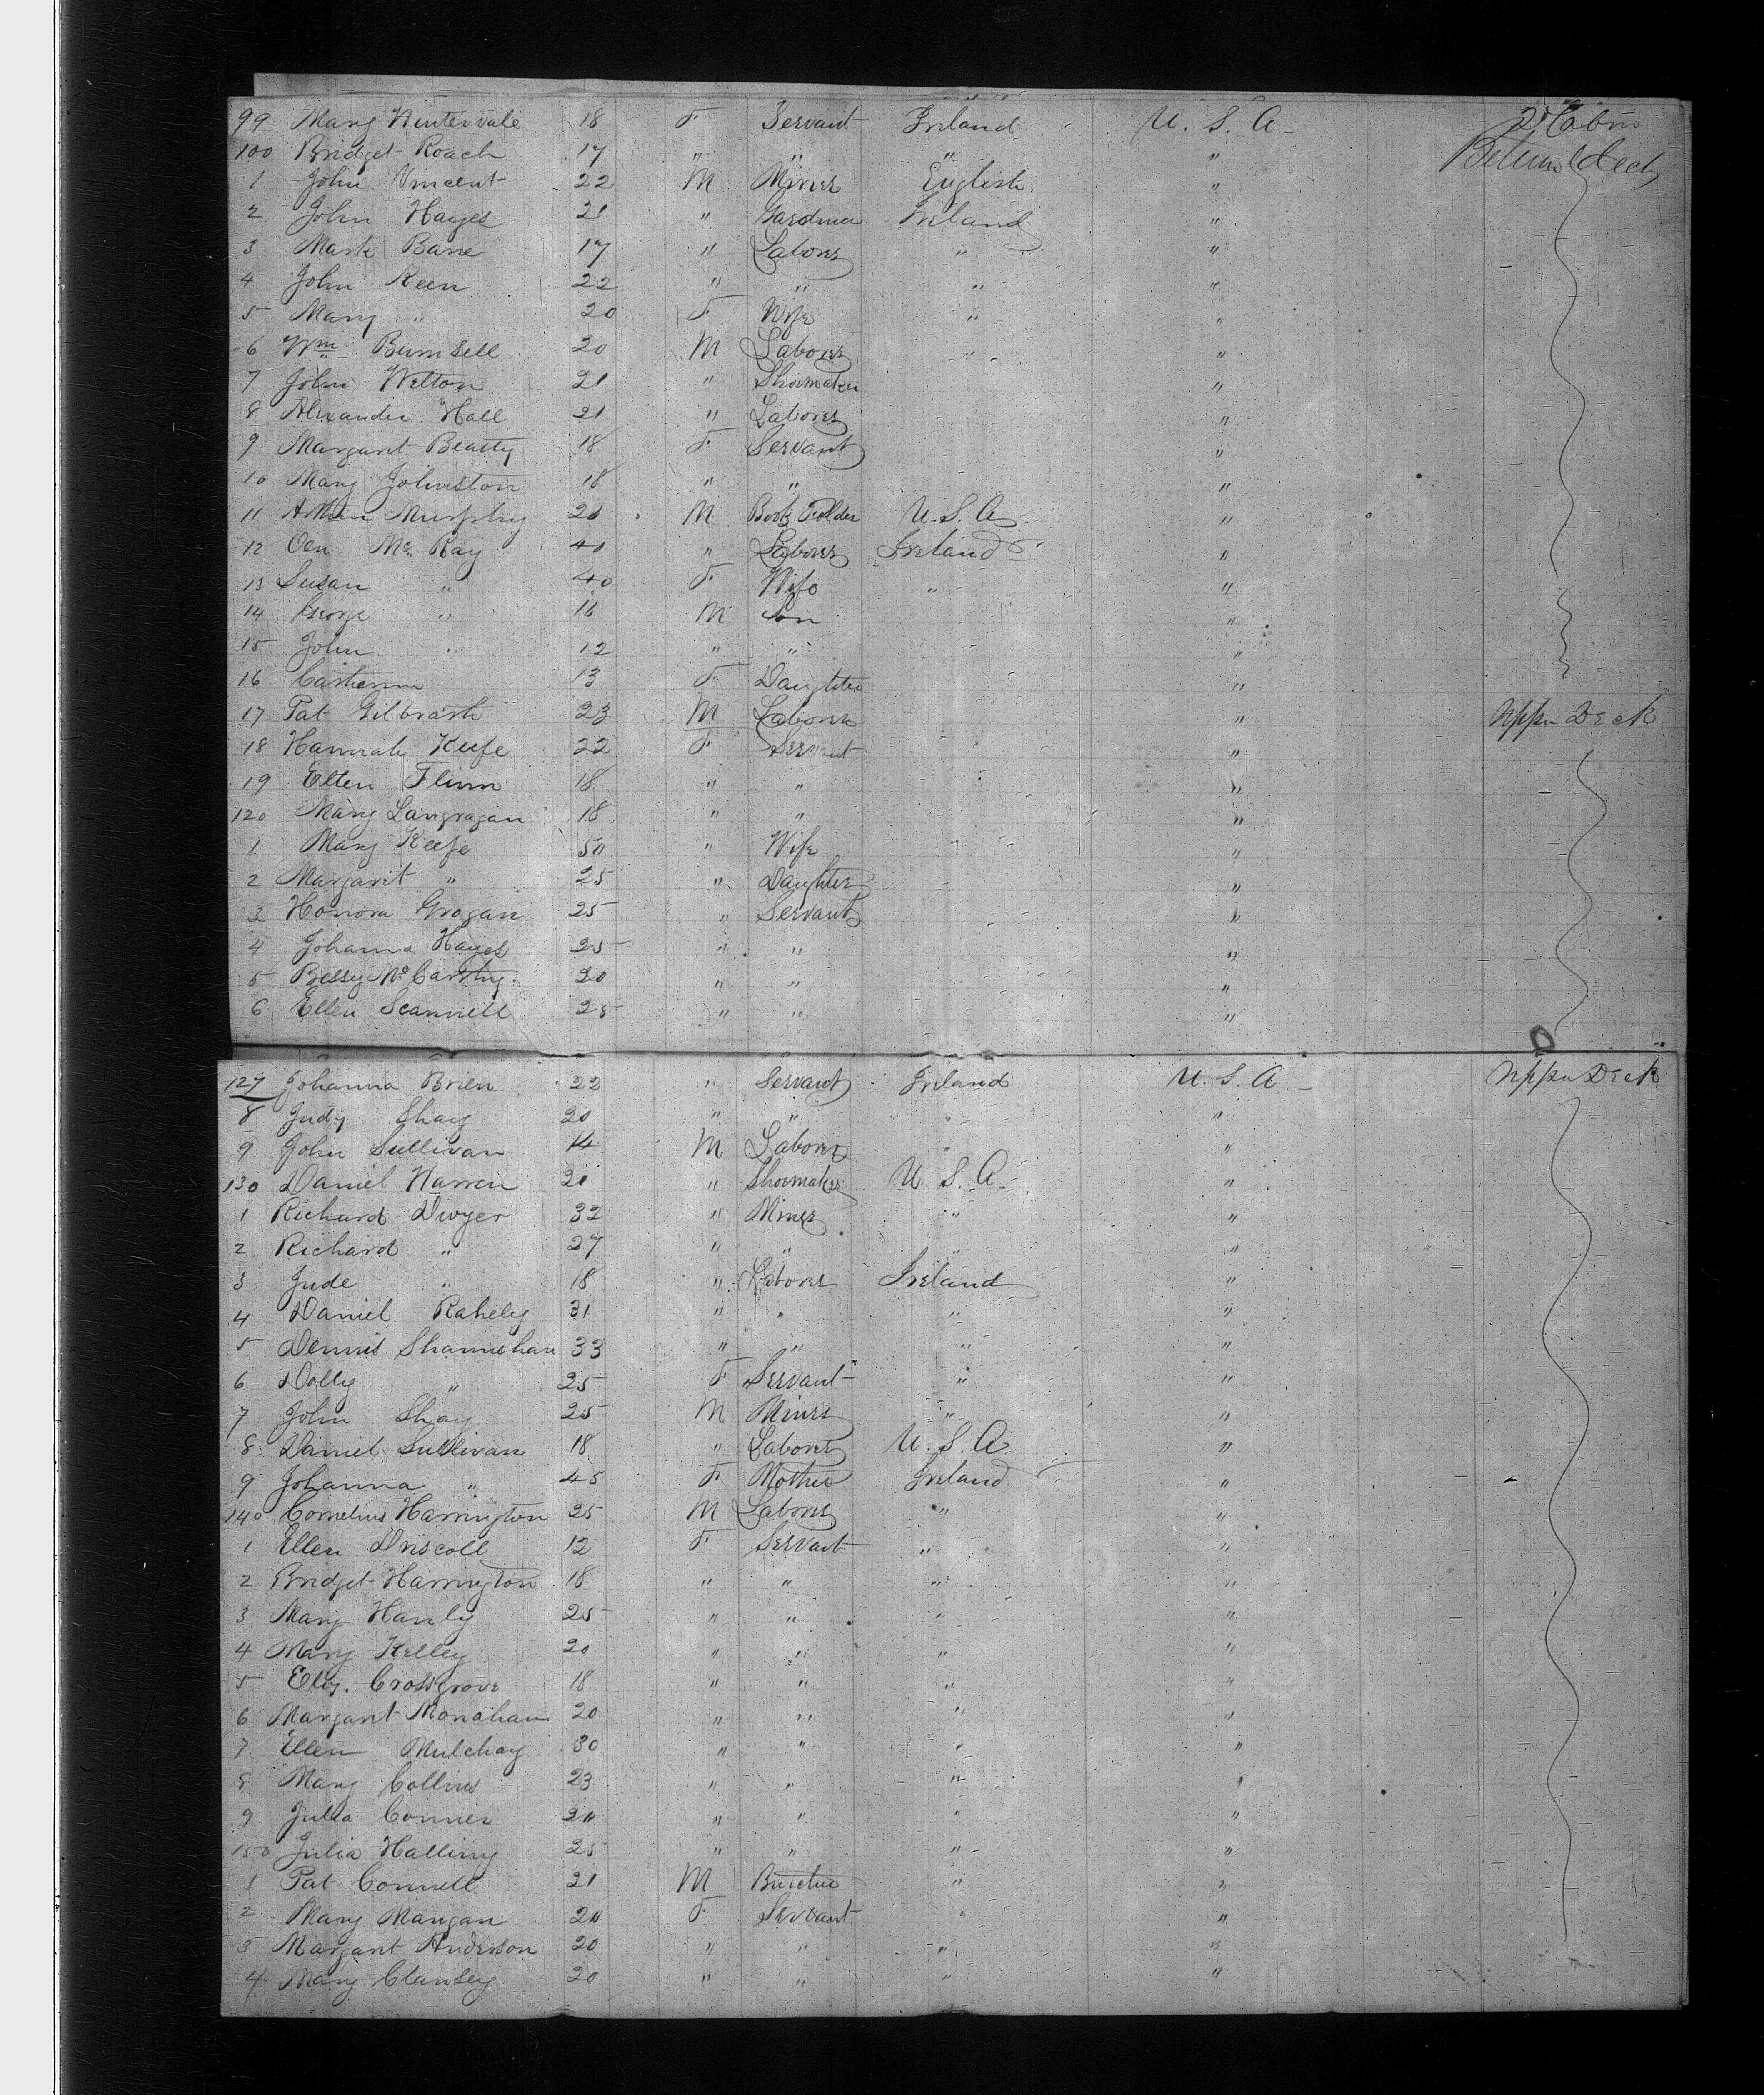 99 Mary Hintervale 18 F Servant Ireland U. S. A 2d Cabin
100 Bridget Roach 17 " " " " Between Deck
1 John Vincent 22 M Miner English "
2 John Hayes 21 " Gardner Ireland "
3 Mark Bane 17 " Laborer " "
4 John Keen 22 " " " "
5 Mary " 20 F Wife " "
6 Wm Bumsell 20 M Laborer " "
7 John Welton 21 " Shoemaker "
8 Alexander Hall 21 " Laborer "
9 Margaret Beatty 18 F Servant "
10 Mary Johnston 18 " " "
11 Arthur Murphy 21 M Book Folder U. S. A. "
12 Oen Mc Kay 40 " Laborer Ireland "
13 Susan " 40 F Wife " "
14 George " 16 M Son "
15 John " 12 " " "
16 Catherine 13 F Daughter "
17 Pat Gilbrath 23 M Laborer " Upper Deck
18 Hannah Keefe 22 F Servant "
19 Ellen Flinn 18 " " "
120 Mary Langragan 18 " " "
1 Mary Keefe 50 " Wife "
2 Margarit " 25 " Daughter "
3 Honora Grogan 25 " Servant "
4 Johanna Hayes 25 " " "
5 Bessy McCarthy. 20 " " "
6 Ellen Scannell 25 " " "
127 Johanna Brien 22 " Servant Ireland U. S. A Upper Deck
8 Judy Shay 20 " " " "
9 John Sullivan 14 M Laborer "
130 Daniel Warren 21 " Shoemaker U. S. A. "
1 Richard Dwyer 32 " Miner " "
2 Richard " 27 " " " "
3 Jude " 18 " Laborer Ireland "
4 Daniel Raheley 31 " " " "
5 Dennis Shannehan 33 " " " "
6 Dolly " 25 F Servant " "
7 John Shay 25 M Miner " "
8 Daniel Sullivan 18 " Laborer U. S. A "
9 Johanna " 45 F Mother Ireland "
140 Cornelius Harrington 25 M Laborer " "
1 Ellen Driscoll 12 F Servant " "
2 Bridget Harrington 18 " " " "
3 Mary Hanly 25 " " " "
4 Mary Kelley 20 " " " "
5 Eliz. Crossgrove 18 " " " "
6 Margaret Monahan 20 " " " "
7 Ellen Mulchay 30 " " " "
8 Mary Collins 23 " " " "
9 Julia Conner 20 " " " "
150 Julia Halling 25 " " " "
1 Pat Connell 21 M Butcher " "
2 Mary Mangan 20 F Servant " "
3 Margaret Anderson 20 " " " "
4 Mary Clansey 20 " " " "